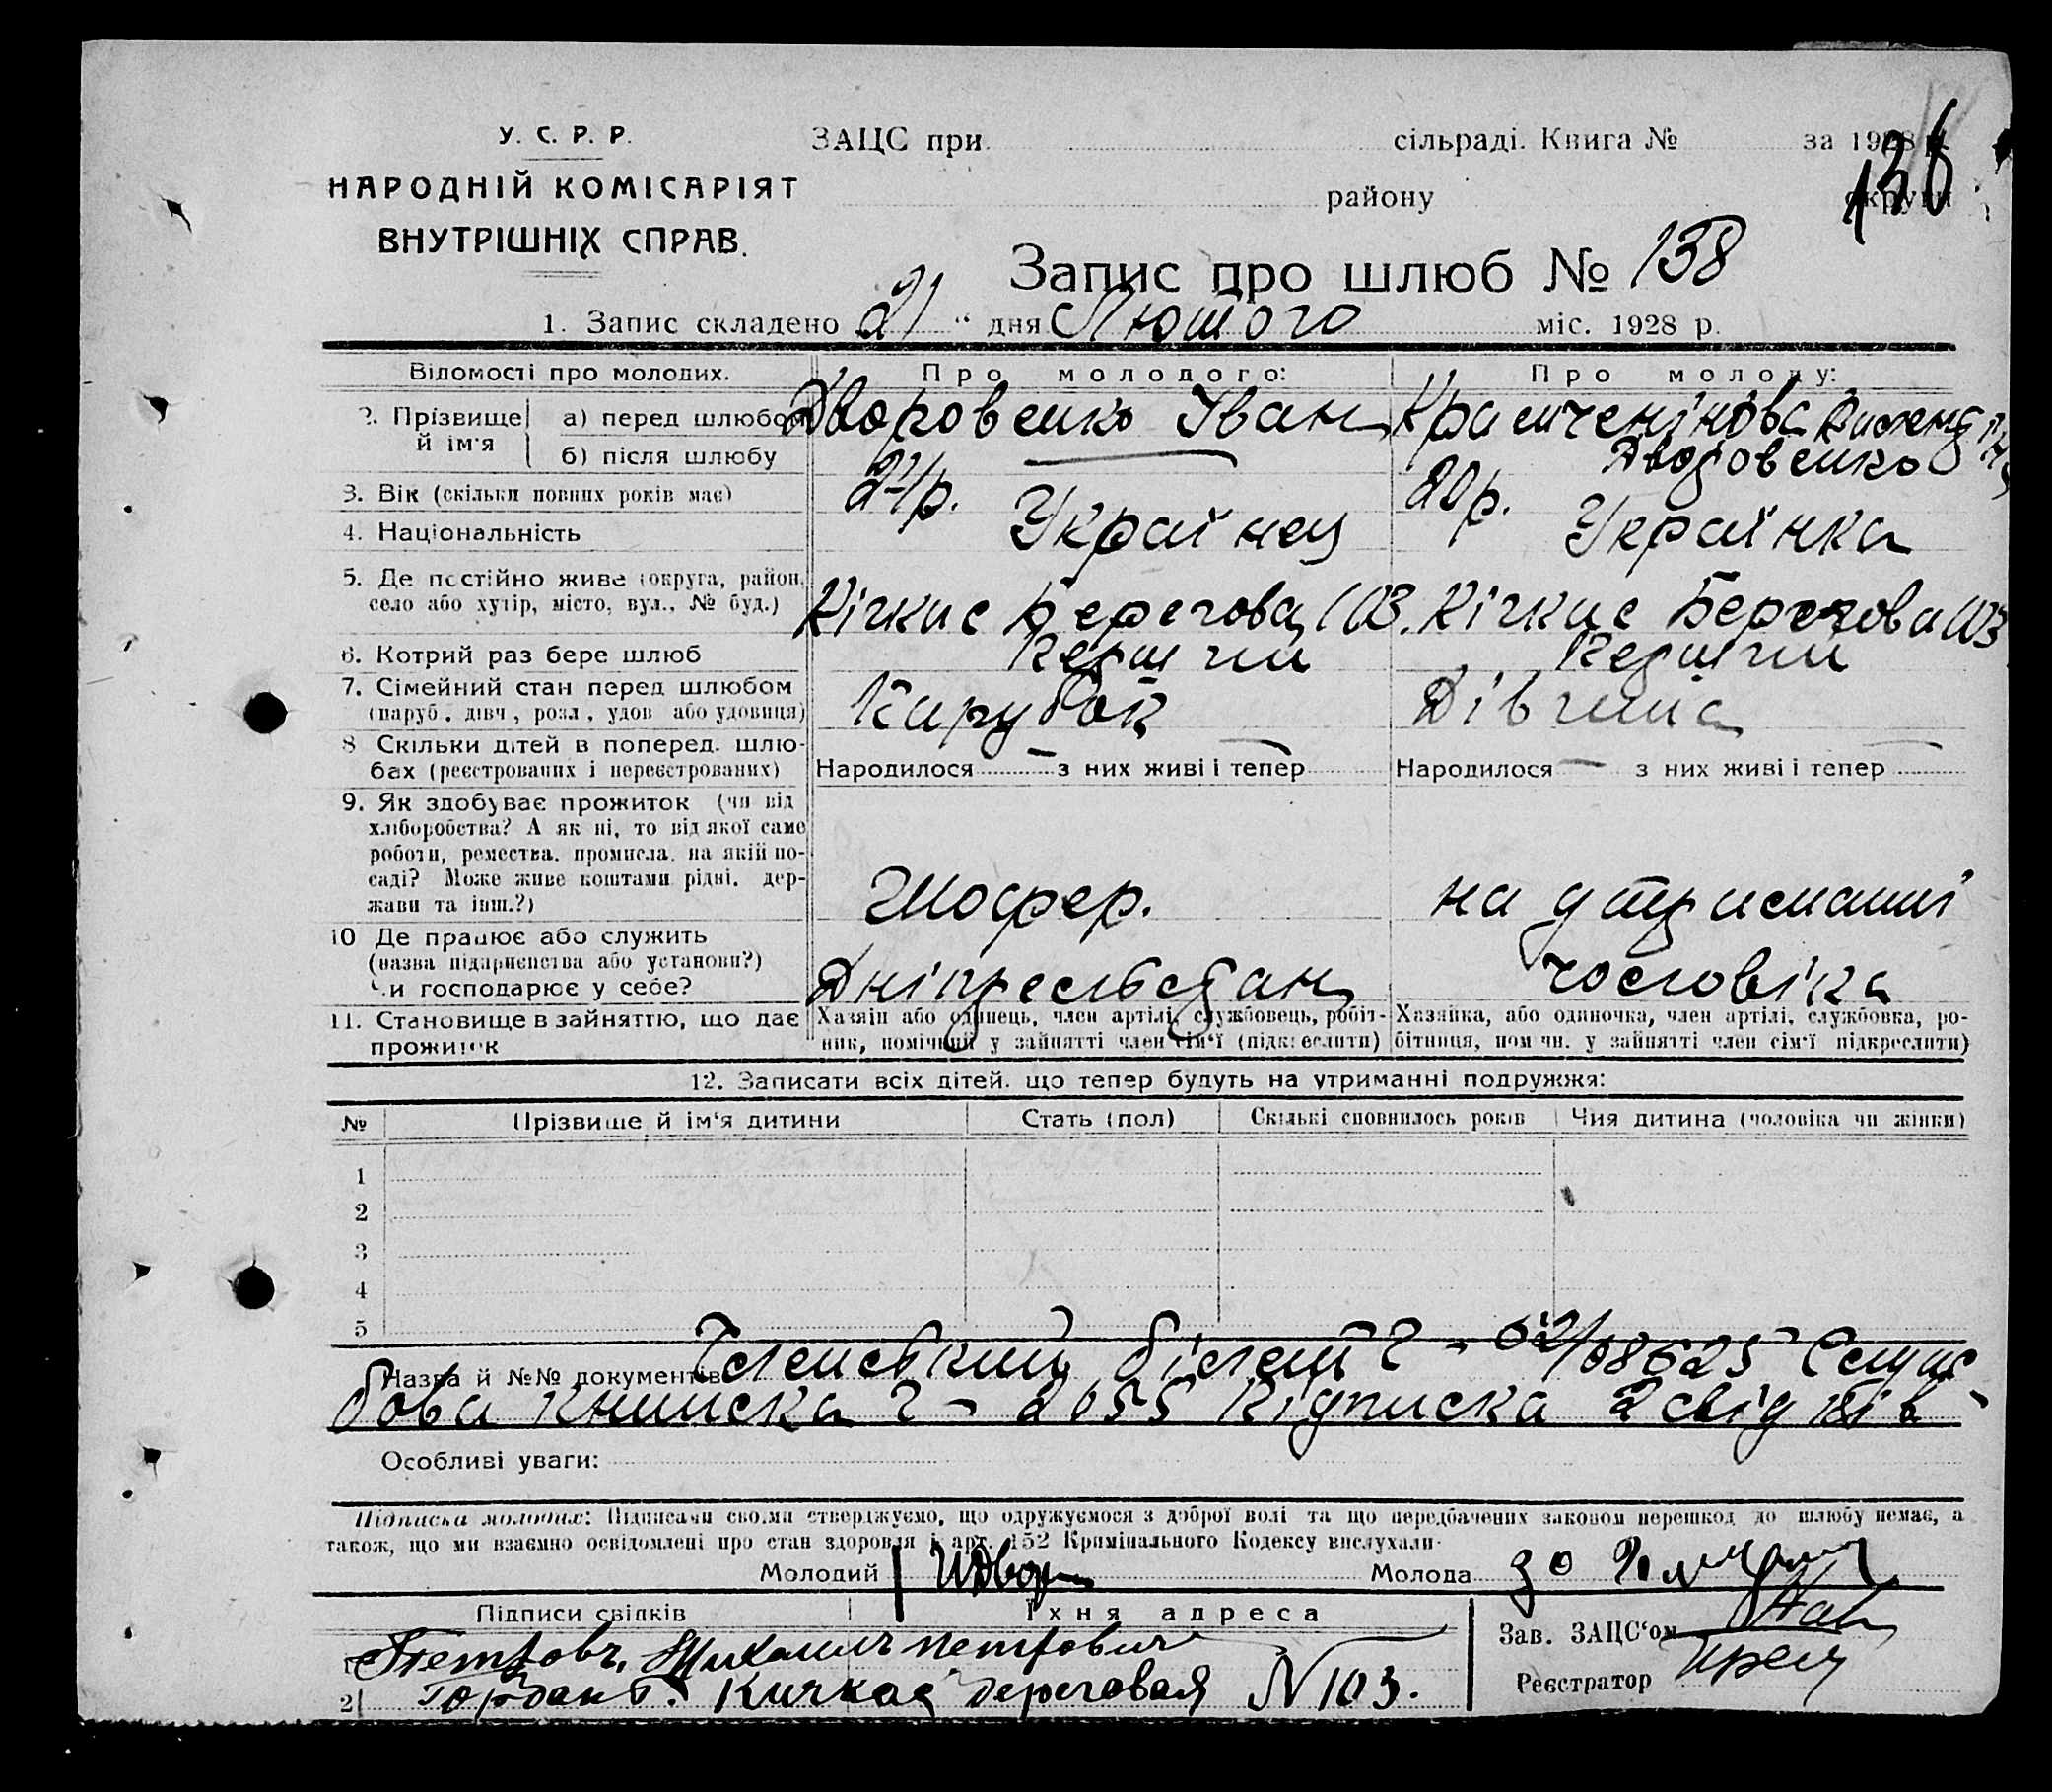 У. С. Р. Р.
НАРОДНІЙ КОМІСАРІЯТ
ВНУТРІШНІХ СПРАВ.
ЗАЦС при сільраді. Книга № за 1928 р.
району округи
136
Запис про шлюб № 138
1. Запис складено 21 “ дня Лютого міс. 1928 р.
Відомості про молодих. Про молодого: Про молоду:
2. Прізвище й ім'я а) перед шлюбом Дворовенко Іван
б) після шлюбу — Дворовенко
3. Вік (скільки повних років має) 24р. 20р.
4. Національність Українец Українка
5. Де постійно живе (округа, район, село або хутір, місто, вул., № буд.) Кічкас Берегова 103. Кічкас Берегова 103
6. Котрий раз бере шлюб Перший Перший
7. Сімейний стан перед шлюбом (паруб., дівч., розл., удов. або удовиця) Парубок Дівчина
8. Скільки дітей в поперед. шлюбах (реєстрованих і нереєстрованих) Народилося — з них живі і тепер — Народилося — з них живі і тепер —
9. Як здобуває прожиток (чи від хліборобства? А як ні, то від якої саме роботи, ремества, промисла, на якій посаді? Може живе коштами рідні, держави та інш.?) Шофер. на утриманні
10. Де працює або служить (назва підприємства або установи?) Чи господарює у себе? Дніпрельстан чоловіка
11. Становище в зайняттю, що дає прожиток Хазяїн або одинець, член артілі, службовець, робітник, помічний у зайнятті член сім'ї (підкреслити) Хазяйка, або одиночка, член артілі, службовка, робітниця, пом чн. у зайнятті член сім'ї підкреслити)
12. Записати всіх дітей, що тепер будуть на утриманні подружжя:
№ Прізвище й ім'я дитини Стать (пол) Скількі сповнилось років Чия дитина (чоловіка чи жінки)
1
2
3
4
5
Назва й №№ документів Членський білет
бова книжка 2055 Підписка 2 свідків
Особливі уваги:
Підписка молодих: Підписами своїми стверджуємо, що одружуємося з доброї волі та що передбачених законом перешкод до шлюбу немає, а
також, що ми взаємно освідомлені про стан здоровля і арт. 152 Кримінального Кодексу вислухали.
Молодий ИДвор Молода
Підписи свідків Їхня адреса
1 Петровъ, Михаилъ Петровичъ
2 Кичкас Береговая N 103.
Зав. ЗАЦС'ом
Реєстратор